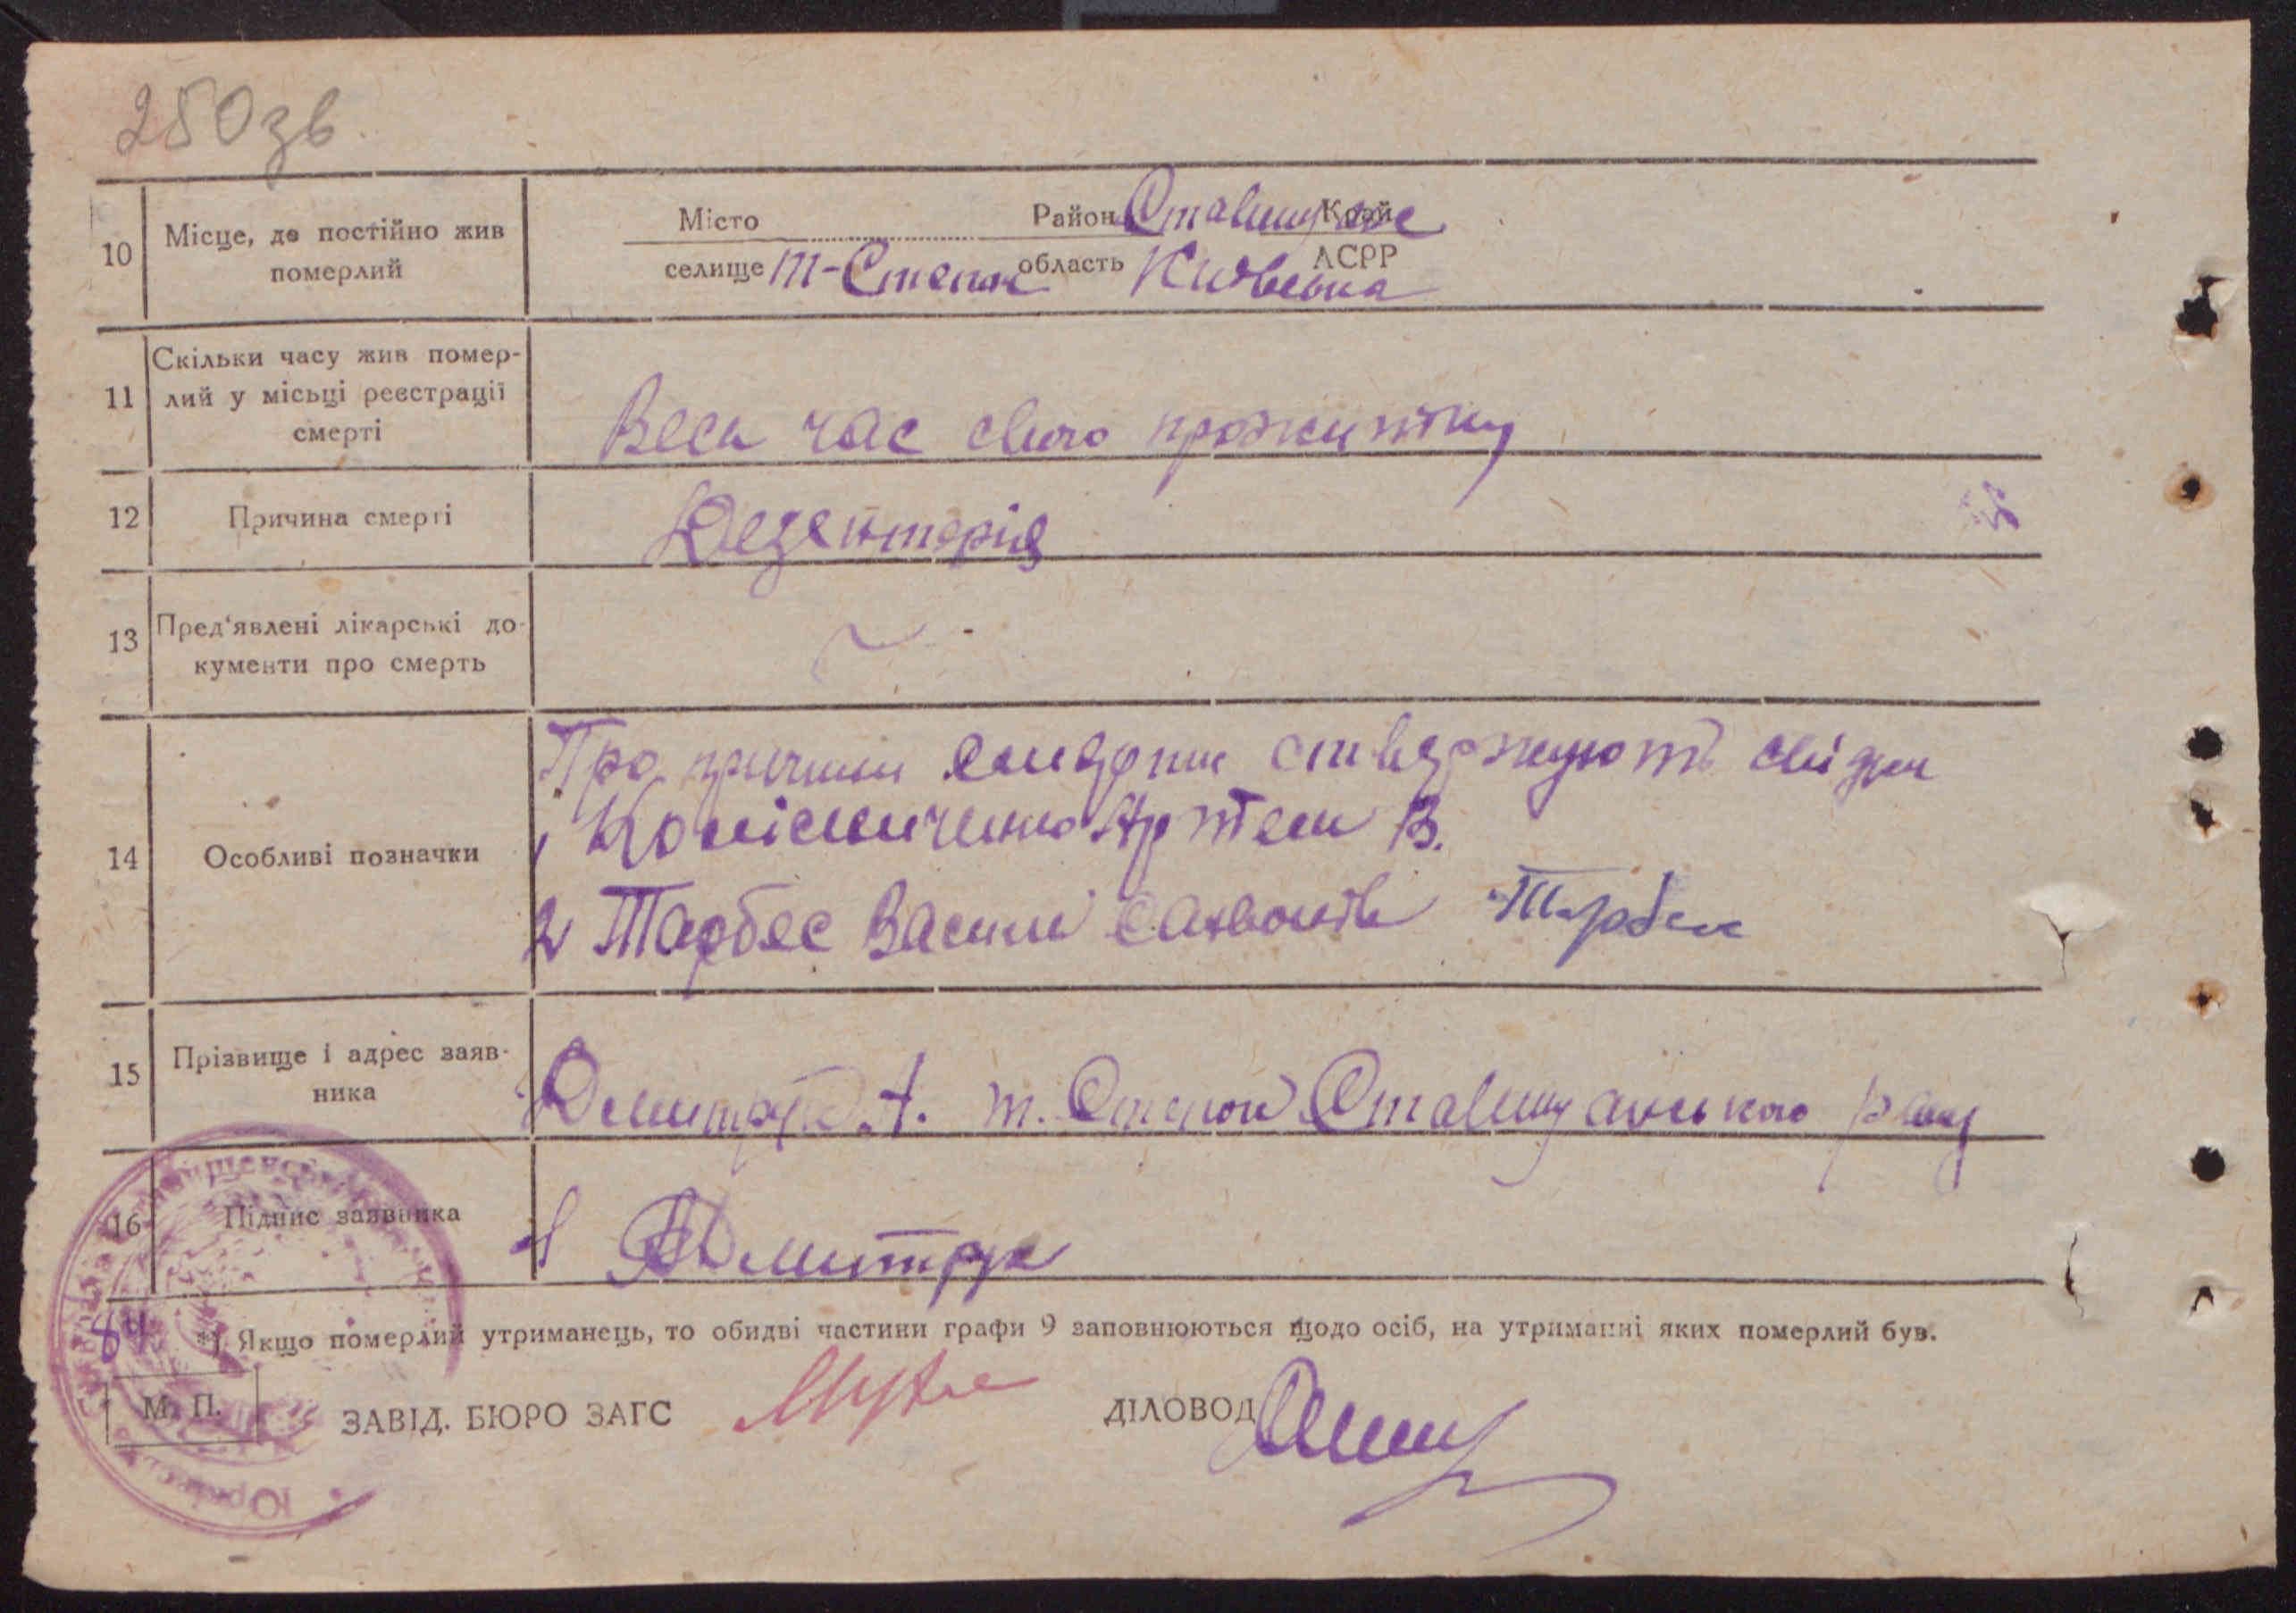 250зв.
Місто Район Ставищанс Край
10 Місце, де постійно жив померлий
селище т-Степок область Київська АСРР
11 Скільки часу жив помер-
лий у місьці реєстрації
смерті
Весь час свого прожитку
12 Причина смерті Дезентерія
13 Пред'явлені лікарські до-
кументи про смерть
Про причини смерти ствержують свідки
1 Артем В.
14 Особливі позначки
2 Тарбас Василь
15 Прізвище і адрес заяв-
ника
Дмитрук А. т. Степок Ставищанського р-ну
16 Підпис заявника Дмитрук
84 *) Якщо померлий утриманець, то обидві частини графи 9 заповнюються щодо осіб, на утриманні яких померлий був.
М. П. ЗАВІД. БЮРО ЗАГС ДІЛОВОД